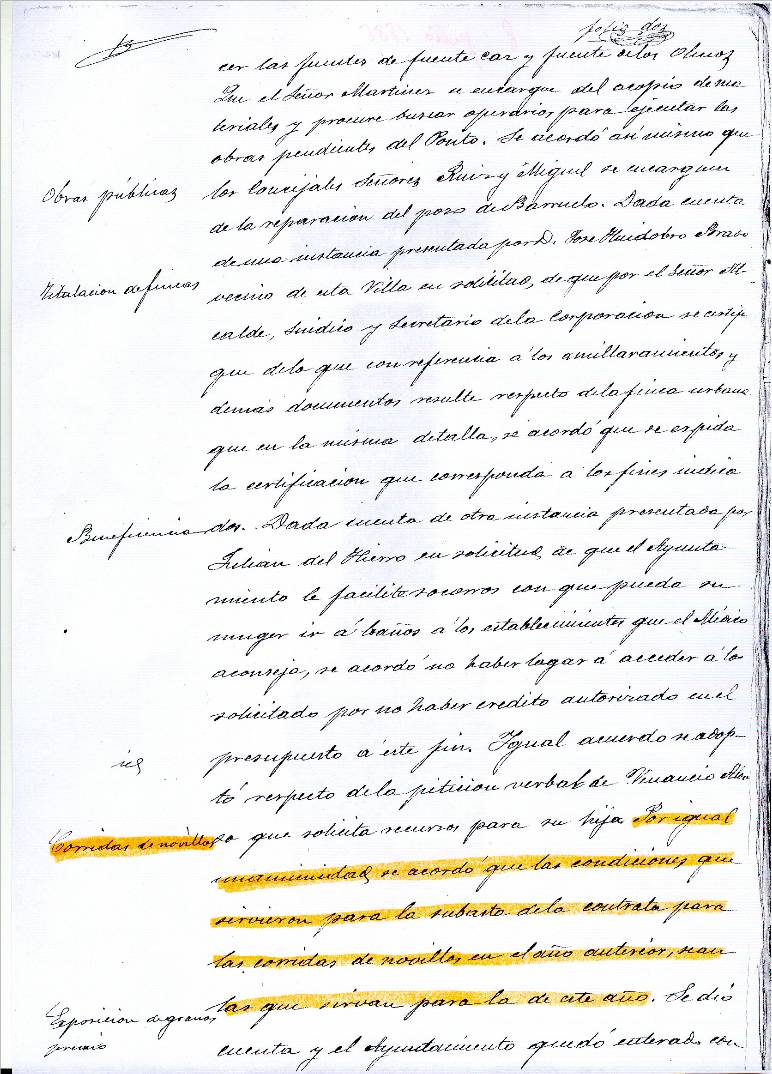 folio dos
cer las fuentes de fuente caz y fuente de los
Que el Señor Martinez se encargue del acopio de ma
teriales y procure buscar operarios para ejecutar las
obras pendientes del Ponto. Se acordó asi mismo que
Obras públicas
los Concejales Señores Ruiz y Miguel se encarguen
de la reparacion del pozo de Barruelo. Dada cuenta
de una instancia presentada por D. Jose Huidobro Bravo
Titulacion de fincas
vecino de esta Villa en solicitud, de que por el Señor Al-
calde, Sindico y Secretario de la Corporacion se certifi
que de lo que con referencia á los amillaramientos y
demás documentos resulte respecto de la finca urbana
que en la misma detalla, se acordó que se espida
la certificacion que corresponda a los fines indica
Beneficencia
dos. Dada cuenta de otra instancia presentada por
Julian del Hierro en solicitud de que el Ayunta
miento le facilite socorros con que pueda su
muger ir á baños á los establecimientos que el Médico
aconseja, se acordó no haber lugar á acceder á lo
solicitado por no haber credito autorizado en el
presupuesto á este fin. Igual acuerdo se adop-
id
tó respecto de la peticion verbal de Venancio
so que solicita recursos para su hija Por igual
Corridas de novillos
unanimidad se acordó que las condiciones que
sirvieron para la subasta de la contrata para
las corridas de novillos en el año anterior, sean
las que sirvan para la de este año. Se dió
Exposicion de granos
premio
cuenta y el Ayuntamiento quedó enterado con